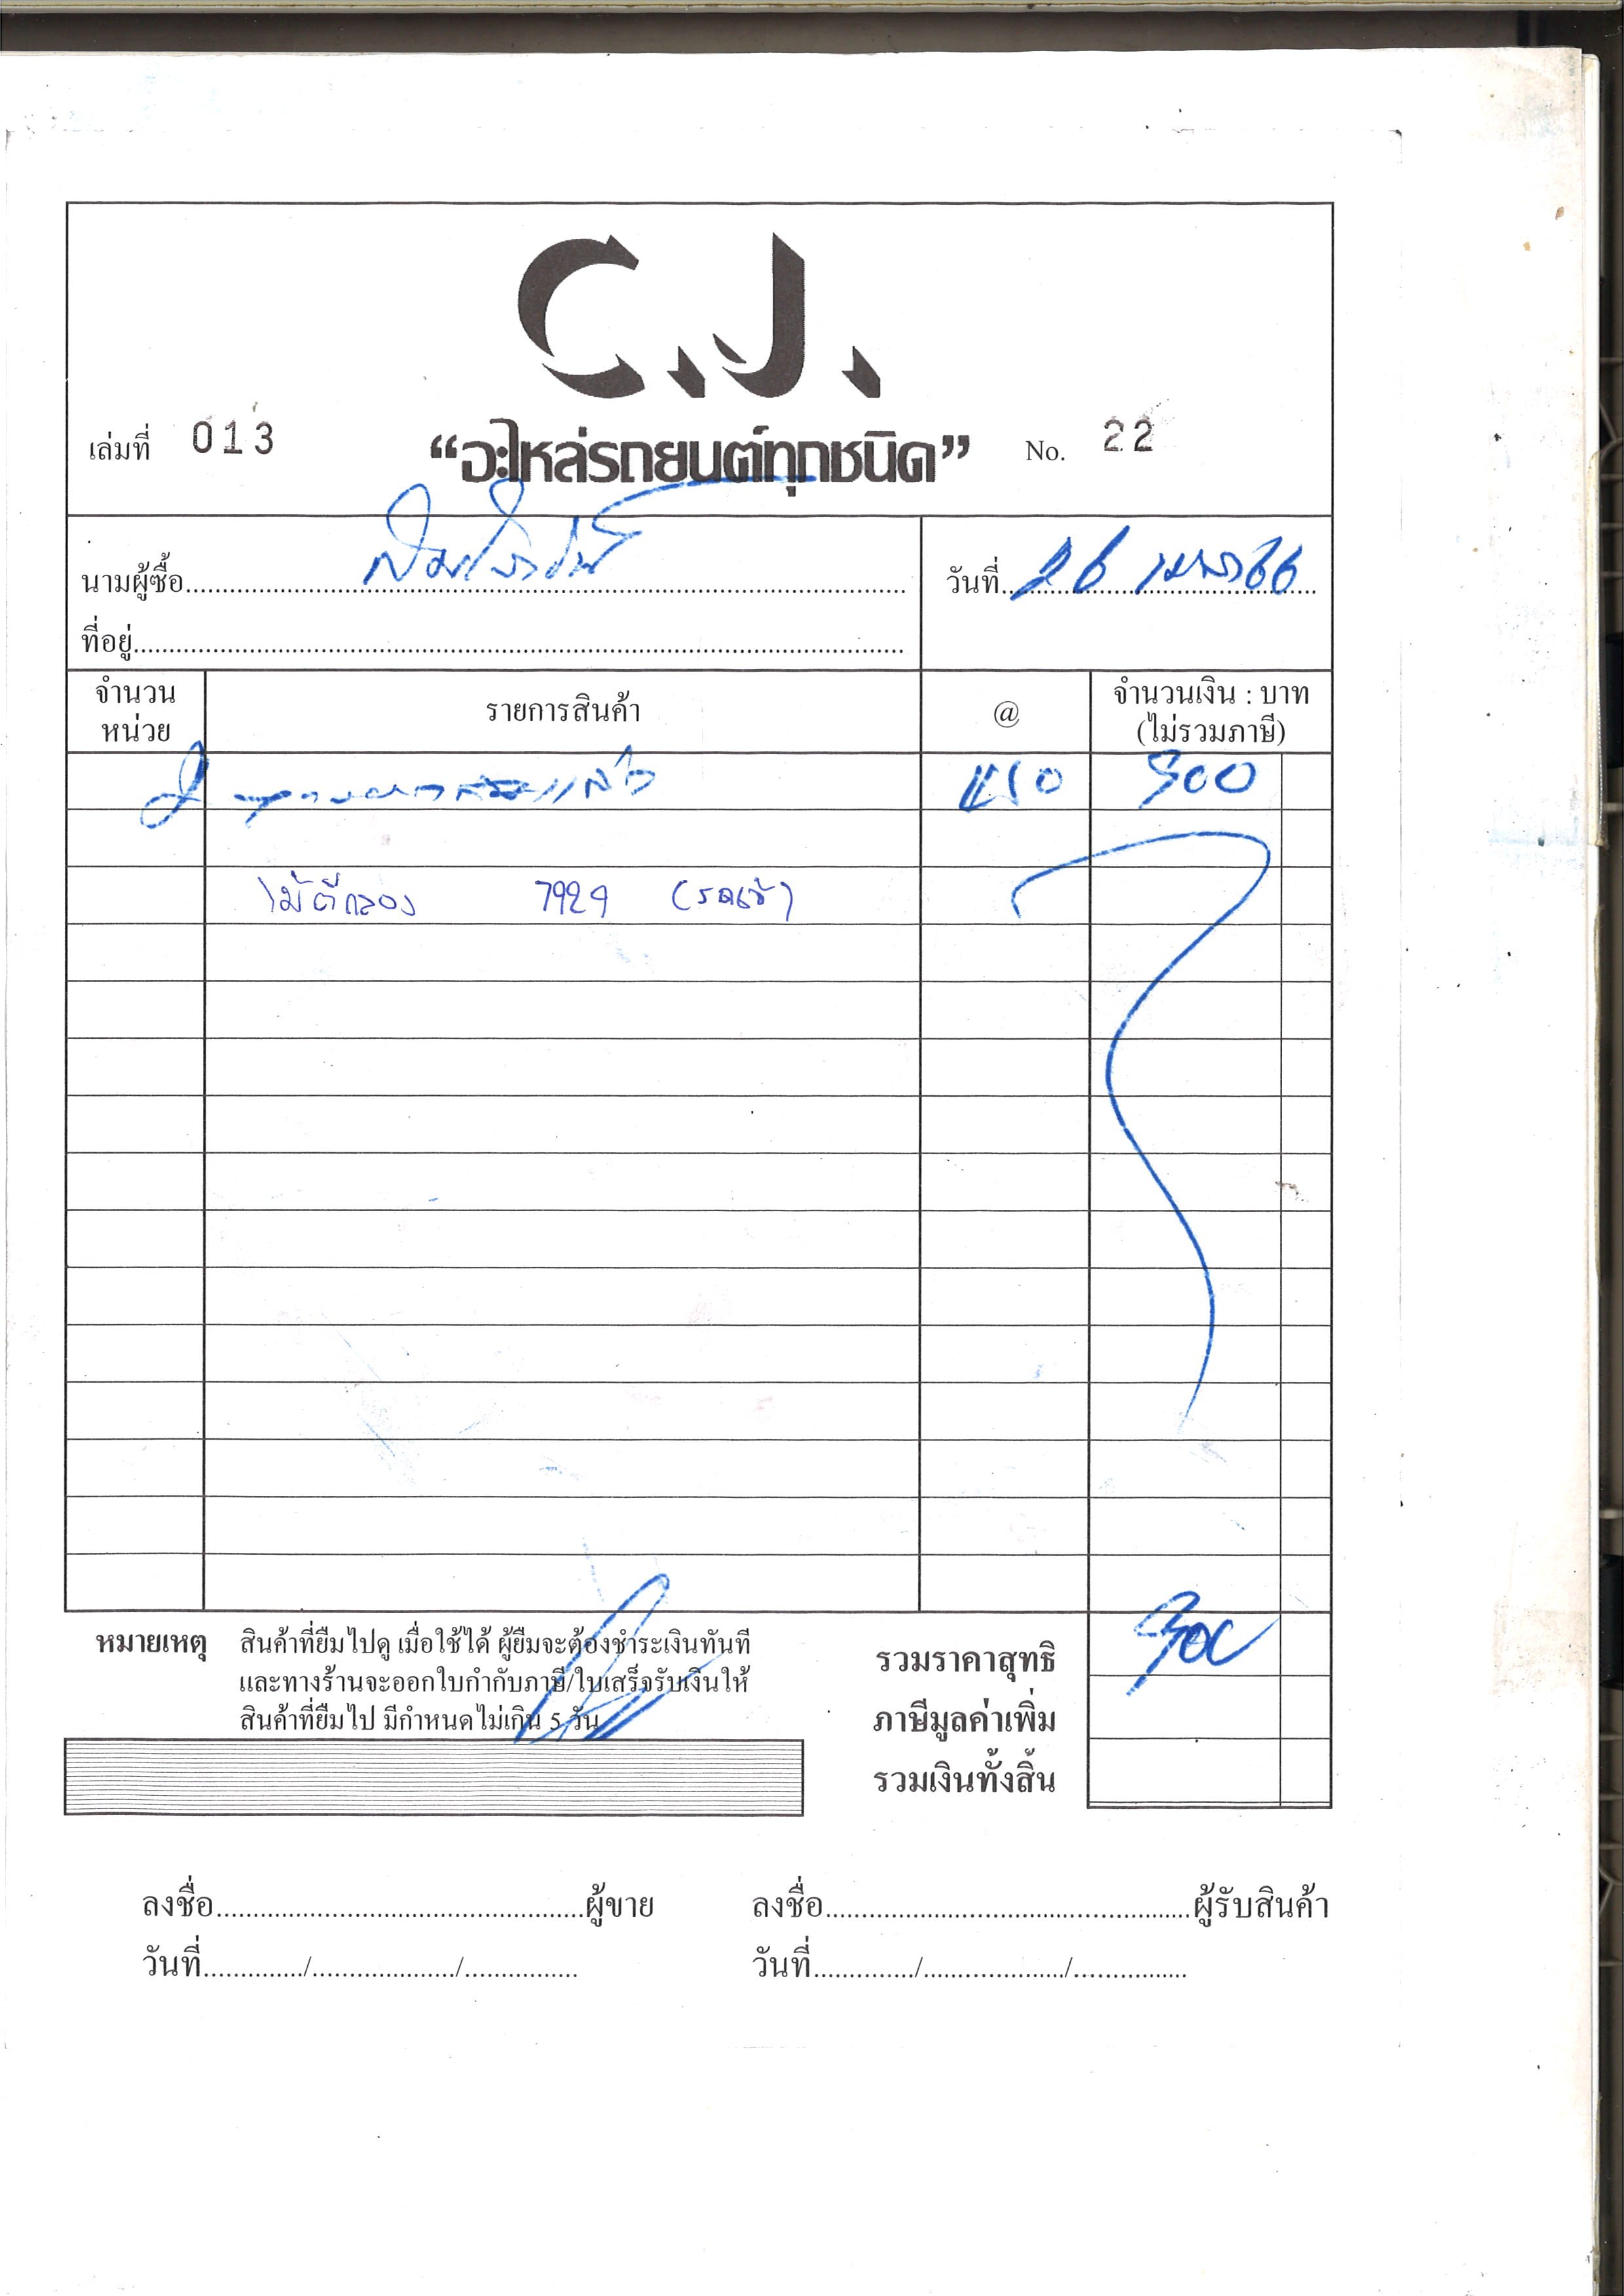 C.J.
เล่มที่ 013 “อะไหล่รถยนต์ทุกชนิด” No. 22
นามผู้ซื้อ
วันที่ 26 เมษา 66
ที่อยู่
จำนวน หน่วย รายการสินค้า @ จำนวนเงิน : บาท (ไม่รวมภาษี)
2 450 900
ไม้ตีกลอง 7929 (รถเช่)
หมายเหตุ สินค้าที่ยืมไปดู เมื่อใช้ได้ ผู้ยืมจะต้องชำระเงินทันที
และทางร้านจะออกใบกำกับภาษี/ใบเสร็จรับเงินให้
สินค้าที่ยืมไป มีกำหนดไม่เกิน 5 วัน
รวมราคาสุทธิ 900
ภาษีมูลค่าเพิ่ม
รวมเงินทั้งสิ้น
ลงชื่อ ผู้ขาย ลงชื่อ ผู้รับสินค้า
วันที่ / / วันที่ / /